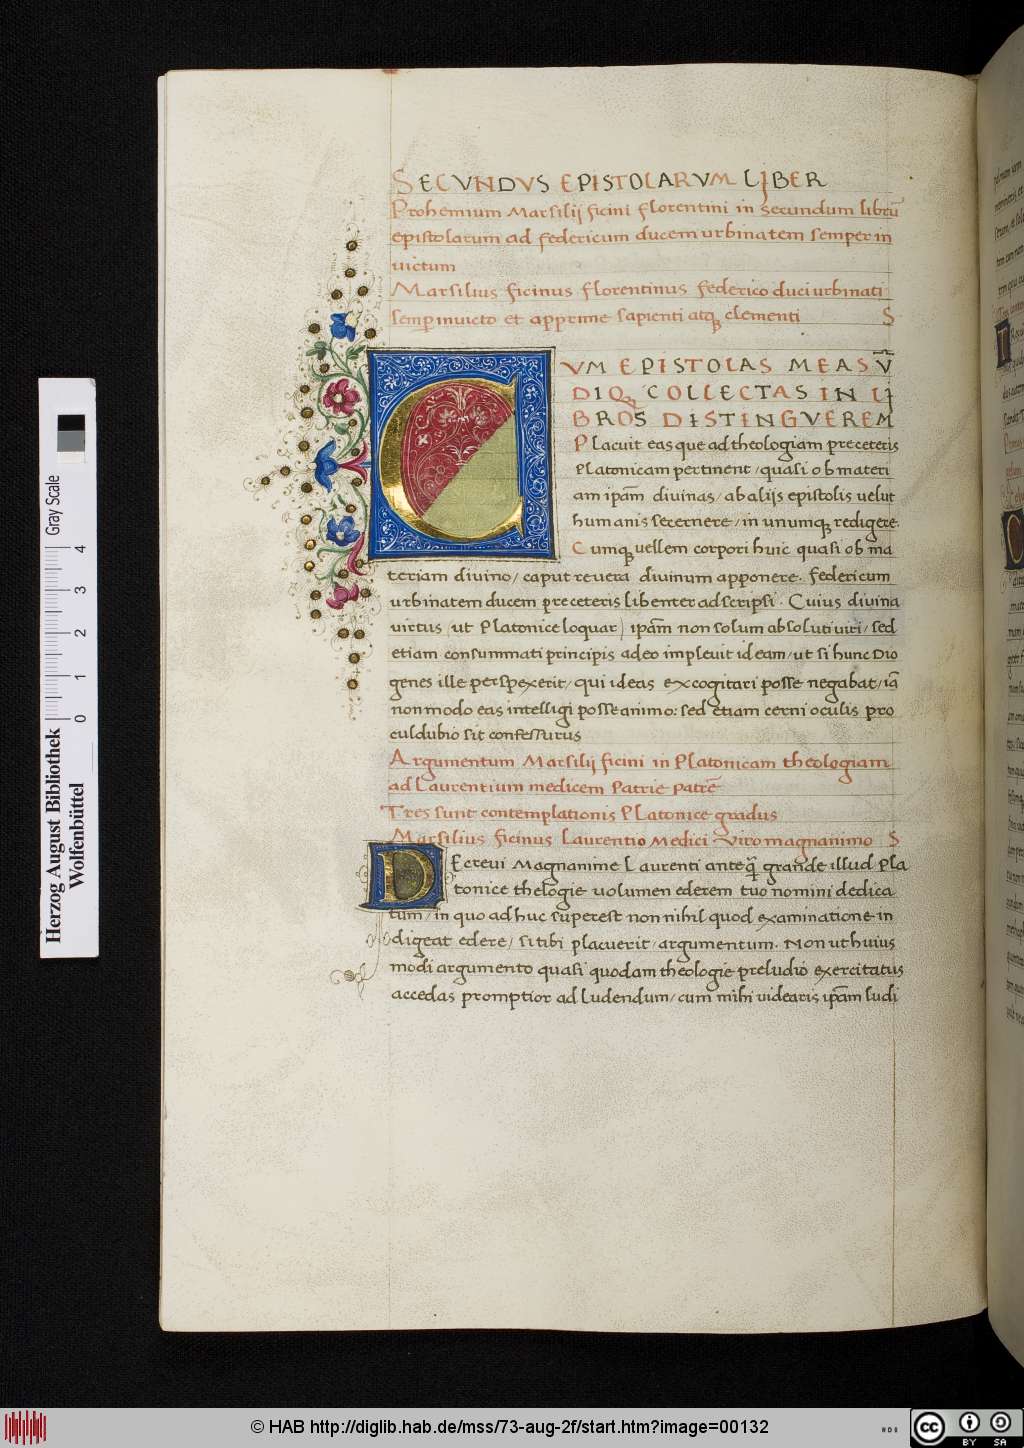 SECUNDUS EPISTOLARVM LIBER
Prohemium Marsilij ficini florentini in secundum librū
epistolarum ad federicum ducem urbinatem semper in
uictum
Marsilius ficinus florentinus federico duci urbinati
semp inuicto et apprime sapienti atq; clementi S
CVM EPISTOLAS MEAS V̄
DIQ; COLLECTAS IN LI
BROS DISTINGVEREM
Placuit eas que ad theologiam preceteris
Platonicam pertinent / quasi ob materi
am ipam divinas / ab alijs epistolis uelut
humanis secernere / in unumq; redigere.
Cumq; uellem corpori huic quasi ob ma
teriam divino / caput reuera divinum apponere. federicum
urbinatem ducem preceteris libenter adscripsi. Cuius divina
virtus (ut Platonice loquar) ipam non solum absoluti viri / sed
etiam consummati principis adeo impleuit ideam / ut si hunc Dio
genes ille perspexerit / qui ideas excogitari posse negabat / iā
non modo eas intelligi posse animo: sed etiam cerni oculis pro
culdubio sit confessurus
Argumentum Marsilij ficini in Platonicam theologiam
ad Laurentium medicem Patrie patrē
Tres sunt contemplationis Platonice gradus
Marsilius ficinus Laurentio Medici Viro magnanimo S
DEcreui Magnanime Laurenti anteq̄ grande illud Pla
tonice thelogie uolumen ederem tuo nomini dedica
tum / in quo adhuc superest non nihil quod examinatione in
digeat edere / si tibi placuerit / argumentum. Non ut huius
modi argumento quasi quodam theologie preludio exercitatus
accedas promptior ad Ludendum / cum mihi uidearis ipam ludi
Herzog August Bibliothek
Wolfenbüttel
Gray Scale
0 1 2 3 4
© HAB http://diglib.hab.de/mss/73-aug-2f/start.htm?image=00132
cc BY SA